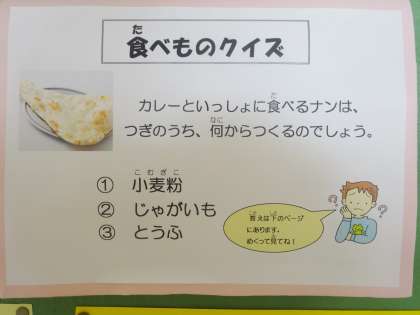 食べものクイズ
カレーといっしょに食べるナンは、
つぎのうち、何からつくるのでしょう。
① 小麦粉
② じゃがいも
③ とうふ
答えは下のページ
にあります。
めくって見てね！